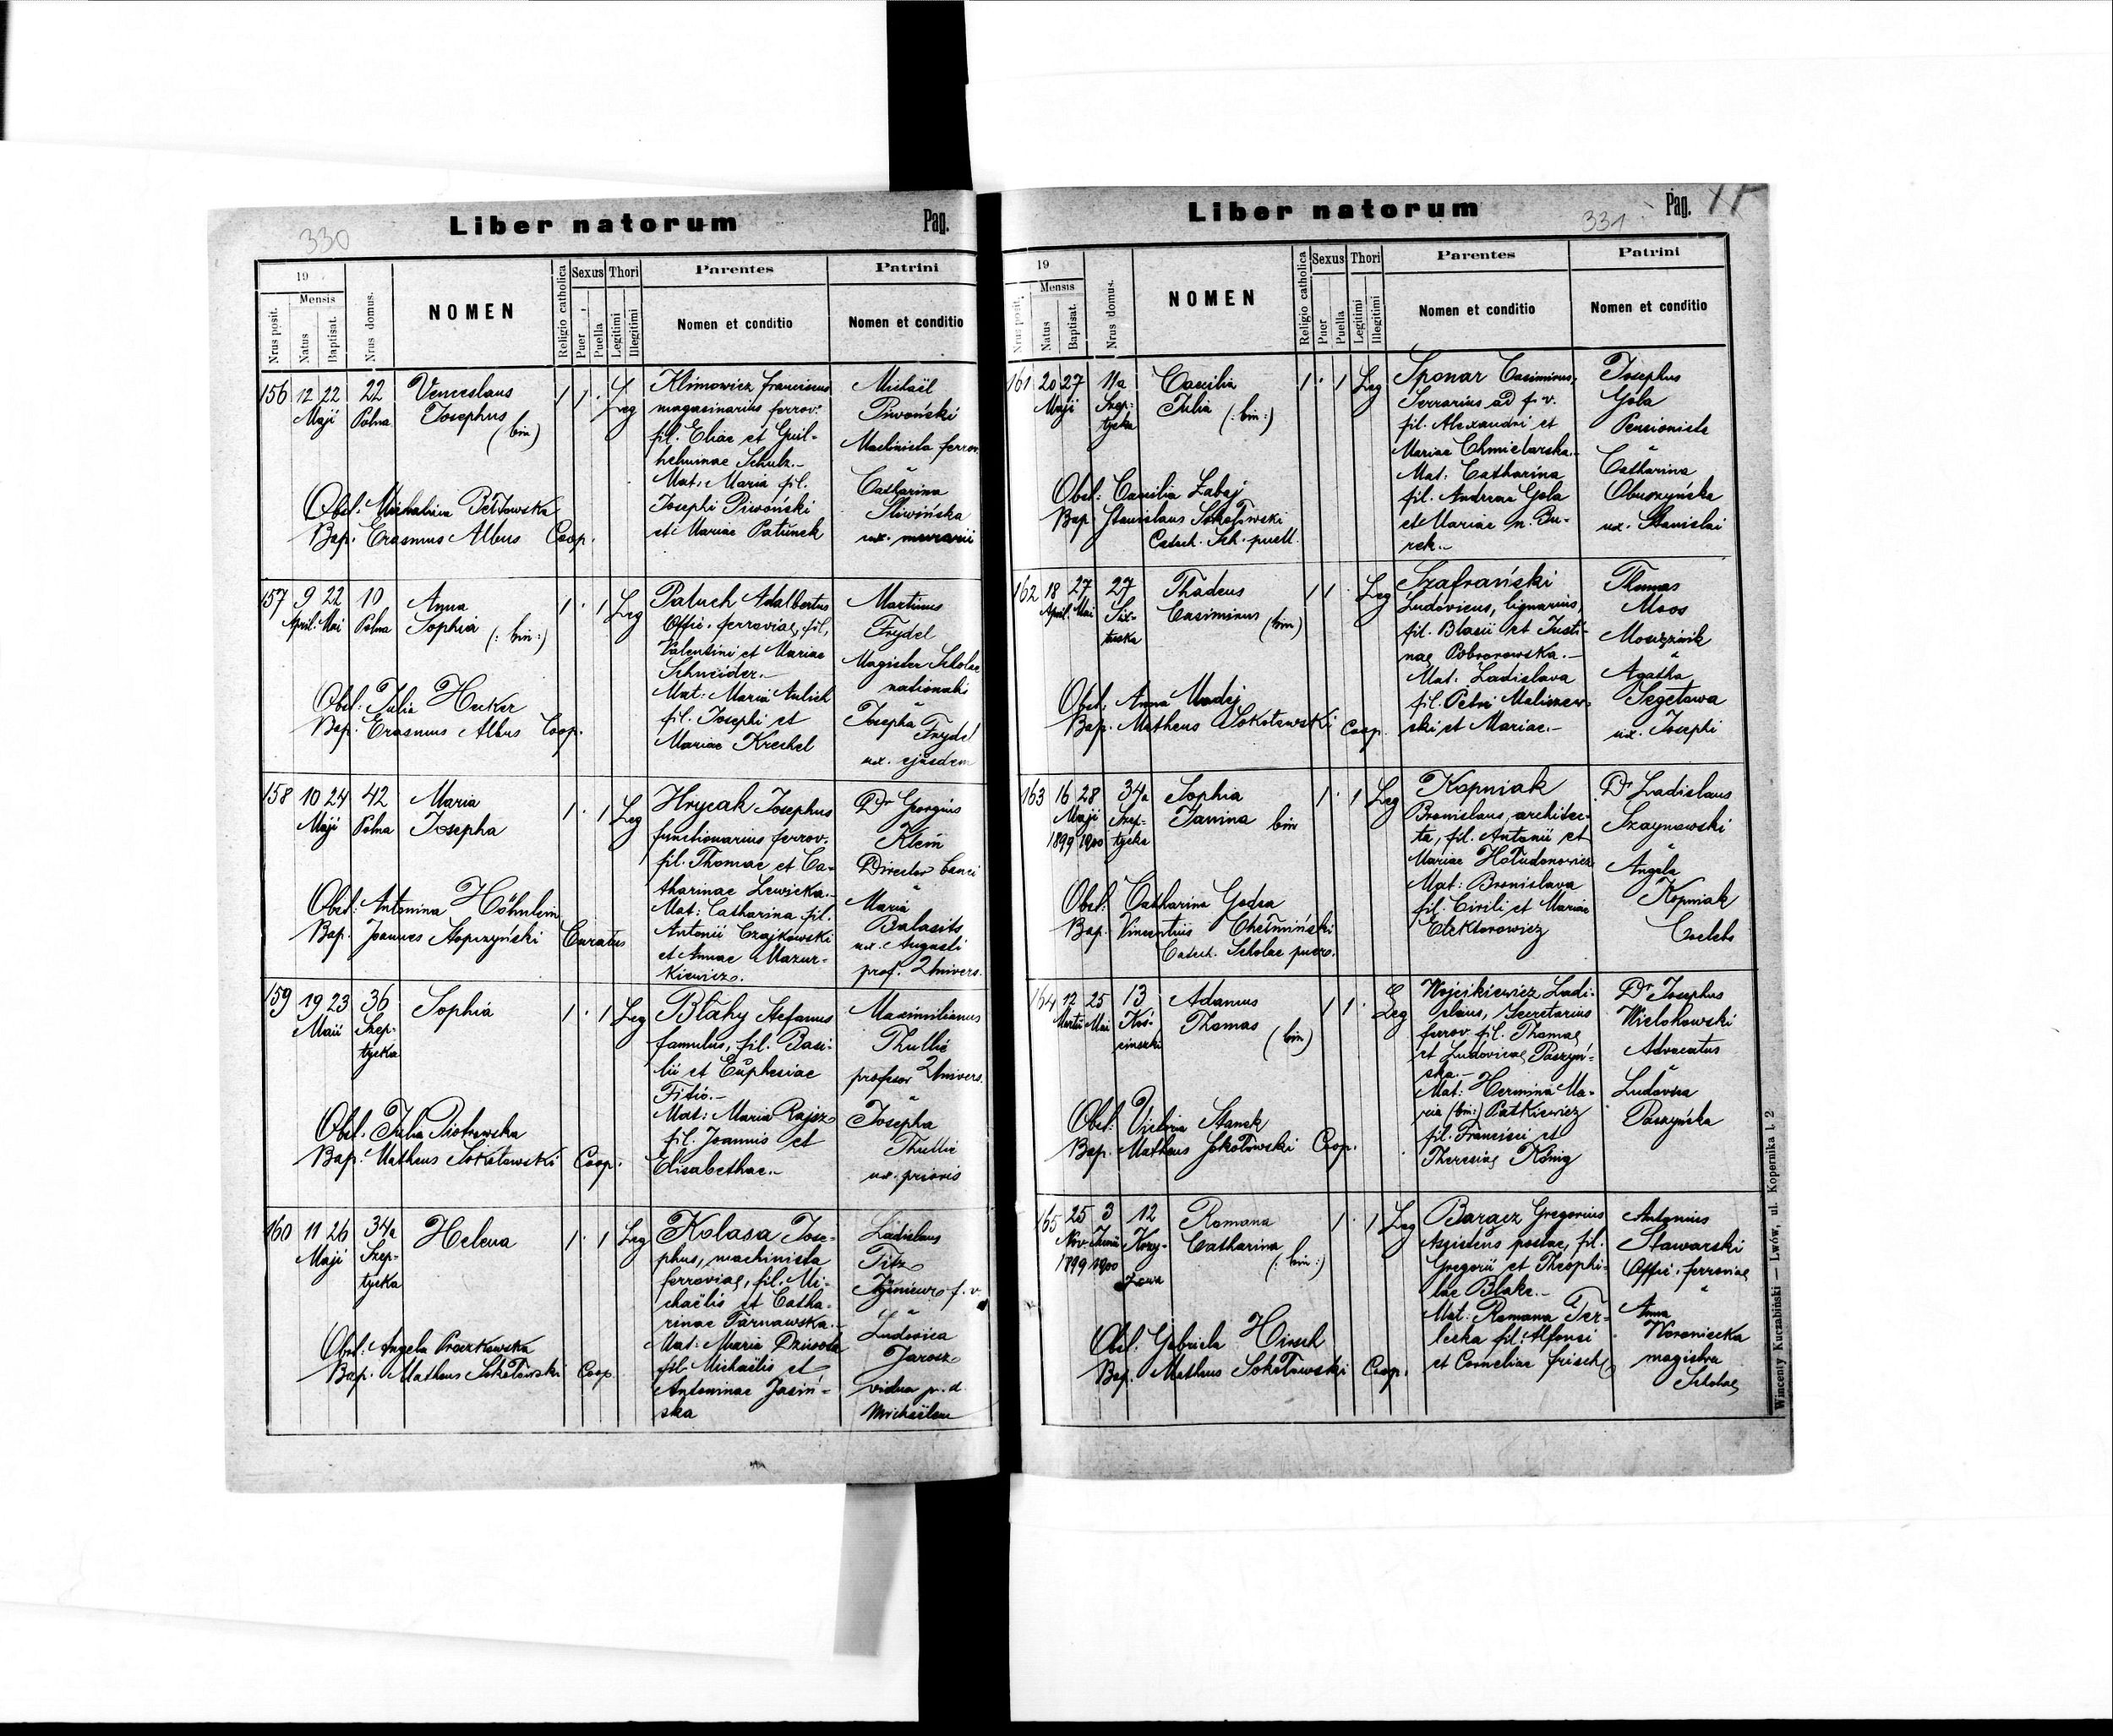 330
Liber natorum Pag.
19
Mensis
Nrus posit.
Natus
Baptisat.
Nrus domus.
NOMEN
Religio catholica
Sexus
Puer
Puella
Thori
Legitimi
Illegitimi
Parentes
Nomen et conditio
Patrini
Nomen et conditio
156
12 22
Maji
22
Polna
Venceslaus
Josephus
(bin)
1 1 · Leg
Klimowicz Franciscus
magasinarius ferrov.
fil. Eliae et Guil-
helminae Schulz.-
Mat: Maria fil.
Josephi Piwoński
et Mariae Patunek
Michaël
Piwoński
Machinista ferrov.
Catharina
Śliwińska
ux. murarii
Obst. Michalina
Bap. Erasmus Albus Coop.
157
9 22
April. Mai
10
Polna
Anna
Sophia (: bin:)
1 · 1 Leg
Paluch Adalbertus
Offic. ferroviae, fil.
Valentini et Mariae
Schneider.-
Mat: Maria Aulich
fil. Josephi et
Mariae Krechel
Martinus
Frydel
Magister Scholae
nationalis
Josepha
Frydel
ux. ejusdem
Obst. Julia Hecker
Bap. Erasmus Albus Coop.
158
10 24
Maji
42
Polna
Maria
Josepha
1 · 1 Leg
Hrycak Josephus
functionarius ferrov.
fil. Thomae et Ca-
tharinae Lewicka.-
Mat: Catharina fil.
Antonii Czajkowski
et Annae Mazur-
kiewicz.
Dr Georgius
Klein
Director banci
Maria
Balasits
ux. Augusti
prof. Univers.
Obst: Antonina Höhnlein
Bap. Joannes Stopczyński Curatus
159
19 23
Maii
36
Szep-
tycka
Sophia
1 · 1 Leg
Błahy Stefanus
famulus, fil. Basi-
lii et Euphesiae
Fitio.-
Mat: Maria Rajsz
fil. Joannis et
Elisabethae.-
Maximilianus
Thullie
profesor Univers.
Josepha
Thullie
ux. prioris
Obst. Julia Piotrowska
Bap. Matheus Sokołowski Coop.
160
11 26
Maji
34a
Szep-
tycka
Helena
1 · 1 Leg
Kolasa Jose-
phus, machinista
ferroviae, fil. Mi-
chaëlis et Catha-
rinae Tarnawska.-
Mat: Maria
fil. Michaëlis et
Antoninae Jasiń-
ska
Ladislaus
Titz
f. v.
Ludovica
Jarosz
vidua p. d.
Michaëlem
Obst. Angela Proczkowska
Bap. Matheus Sokołowski Coop.
Liber natorum 331 Pag.
19
Mensis
Nrus posit.
Natus
Baptisat.
Nrus domus.
NOMEN
Religio catholica
Sexus
Puer
Puella
Thori
Legitimi
Illegitimi
Parentes
Nomen et conditio
Patrini
Nomen et conditio
161
20 27
Maji
11a
Szep-
tycka
Caecilia
Julia (: bin:)
1 · 1 Leg
Sponar Casimirus,
Serrarius ad f. v.
fil. Alexandri et
Mariae Chmielarska.-
Mat: Catharina
fil. Andreae Gola
et Mariae n. Bu-
rek.-
Josephus
Gola
Pensioniste
Catharina
Obuszyńska
ux. Stanislai
Obst: Caecilia Zabaj
Bap. Stanislaus Sokołowski
Catech. Sch. puell.
162
18 27
April. Mai
27
Six-
tuska
Thadeus
Casimirus (bin)
1 1 · Leg
Szafrański
Ludovicus, lignarius,
fil. Blasii et Justi-
nae Pobrorowska.-
Mat: Ladislava
fil. Petri Maliszew-
ski et Mariae.-
Thomas
Moos
Mosiężnik
Agatha
Segetowa
ux. Josephi
Obst: Anna Madej
Bap. Matheus Sokołowski Coop.
163
16 28
Maji
1899 1900
34a
Szep-
tycka
Sophia
Janina bin
1 · 1 Leg
Kopniak
Bronislaus, architec-
ta, fil. Antonii et
Mariae Hołudonowicz
Mat: Bronislava
fil. Cirili et Mariae
Elektorowicz
Dr Ladislaus
Szaynowski
Angela
Kopniak
Coelebs
Obst: Catharina Godra
Bap. Vincentius Chełmiński
Catech. Scholae puer.
164
12 25
Martii Mai
13
Koś-
ciuszki
Adamus
Thomas (bin)
1 1 · Leg
Wojcikiewicz Ladi-
slaus, Secretarius
ferrov. fil. Thomae
et Ludovicae Paszyń-
ska.-
Mat: Hermina Ma-
ria (bin:) Patkiewicz
fil. Francisci et
Theresiae König
Dr Josephus
Wielohowski
Advocatus
Ludovica
Paszyńska
Obst: Victoria Stanek
Bap. Matheus Sokołowski Coop.
165
25 3
Nov. Junii
1899 1900
12
Romana
Catharina
(: bin:)
1 · 1 Leg
Baracz Gregorius
Assistens postae, fil.
Gregorii et Theophi-
lae Blake.-
Mat. Romana Ter-
lecka fil. Alfonsi
et Corneliae Frisch
Antonius
Stawarski
Offic. ferroviae
Anna
Woroniecka
magistra
Scholae
Obst. Gabriela Hirsch
Bap. Matheus Sokołowski Coop.
Wincenty Kuczabiński — Lwów, ul. Kopernika l. 2